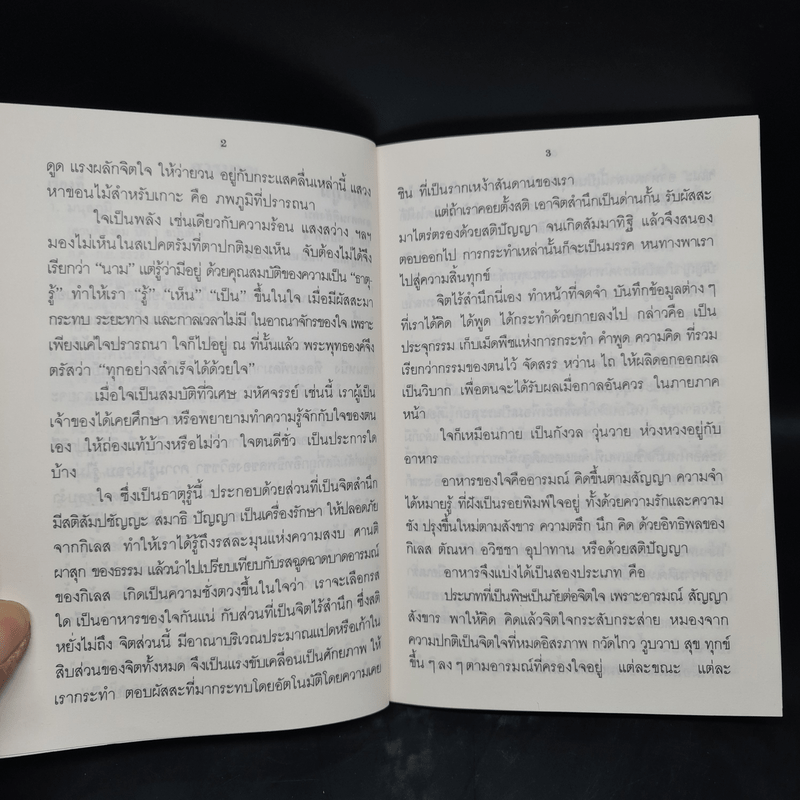 2
ดูด แรงผลักจิตใจ ให้ว่ายวน อยู่กับกระแสคลื่นเหล่านี้ แสวง
หาขอนไม้สำหรับเกาะ คือ ภพภูมิที่ปรารถนา
ใจเป็นพลัง เช่นเดียวกับความร้อน แสงสว่าง ฯลฯ
มองไม่เห็นในสเปคตรัมที่ตาปกติมองเห็น จับต้องไม่ได้จึง
เรียกว่า “นาม” แต่รู้ว่ามีอยู่ ด้วยคุณสมบัติของความเป็น “ธาตุ-
รู้” ทำให้เรา “รู้” “เห็น” “เป็น” ขึ้นในใจ เมื่อมีผัสสะมา
กระทบ ระยะทาง และกาลเวลาไม่มี ในอาณาจักรของใจ เพราะ
เพียงแค่ใจปรารถนา ใจก็ไปอยู่ ณ ที่นั้นแล้ว พระพุทธองค์จึง
ตรัสว่า “ทุกอย่างสำเร็จได้ด้วยใจ”
เมื่อใจเป็นสมบัติที่วิเศษ มหัศจรรย์ เช่นนี้ เราผู้เป็น
เจ้าของได้เคยศึกษา หรือพยายามทำความรู้จักกับใจของตน
เอง ให้ถ่องแท้บ้างหรือไม่ว่า ใจตนดีชั่ว เป็นประการใด
บ้าง
ใจ ซึ่งเป็นธาตุรู้นี้ ประกอบด้วยส่วนที่เป็นจิตสำนึก
มีสติสัมปชัญญะ สมาธิ ปัญญา เป็นเครื่องรักษา ให้ปลอดภัย
จากกิเลส ทำให้เราได้รู้ถึงรสละมุนแห่งความสงบ ศานติ
ผาสุก ของธรรม แล้วนำไปเปรียบเทียบกับรสฉูดฉาดบาดอารมณ์
ของกิเลส เกิดเป็นความชั่งตวงขึ้นในใจว่า เราจะเลือกรส
ใด เป็นอาหารของใจกันแน่ กับส่วนที่เป็นจิตไร้สำนึก ซึ่งสติ
หยั่งไม่ถึง จิตส่วนนี้ มีอาณาบริเวณประมาณแปดหรือเก้าใน
สิบส่วนของจิตทั้งหมด จึงเป็นแรงขับเคลื่อนเป็นศักยภาพ ให้
เรากระทำ ตอบผัสสะที่มากระทบโดยอัตโนมัติโดยความเคย
3
ชิน ที่เป็นรากเหง้าสันดานของเรา
แต่ถ้าเราคอยตั้งสติ เอาจิตสำนึกเป็นด่านกั้น รับผัสสะ
มาไตร่ตรองด้วยสติปัญญา จนเกิดสัมมาทิฐิ แล้วจึงสนอง
ตอบออกไป การกระทำเหล่านั้นก็จะเป็นมรรค หนทางพาเรา
ไปสู่ความสิ้นทุกข์
จิตไร้สำนึกนี่เอง ทำหน้าที่จดจำ บันทึกข้อมูลต่าง ๆ
ที่เราได้คิด ได้พูด ได้กระทำด้วยกายลงไป กล่าวคือ เป็น
ประจุกรรม เก็บเม็ดพืชแห่งการกระทำ คำพูด ความคิด ที่รวม
เรียกว่ากรรมของตนไว้ จัดสรร หว่าน ไถ ให้ผลิดอกออกผล
เป็นวิบาก เพื่อตนจะได้รับผลเมื่อกาลอันควร ในภายภาค
หน้า
ใจก็เหมือนกาย เป็นกังวล วุ่นวาย ห่วงหวงอยู่กับ
อาหาร
อาหารของใจคืออารมณ์ คิดขึ้นตามสัญญา ความจำ
ได้หมายรู้ ที่ฝังเป็นรอยพิมพ์ใจอยู่ ทั้งด้วยความรักและความ
ชัง ปรุงขึ้นใหม่ตามสังขาร ความตรึก นึก คิด ด้วยอิทธิพลของ
กิเลส ตัณหา อวิชชา อุปาทาน หรือด้วยสติปัญญา
อาหารจึงแบ่งได้เป็นสองประเภท คือ
ประเภทที่เป็นพิษเป็นภัยต่อจิตใจ เพราะอารมณ์ สัญญา
สังขาร พาให้คิด คิดแล้วจิตใจกระสับกระส่าย หมองจาก
ความปกติเป็นจิตใจที่หมดอิสรภาพ กวัดไกว วูบวาบ สุข ทุกข์
ขึ้น ๆ ลง ๆ ตามอารมณ์ที่ครองใจอยู่ แต่ละขณะ แต่ละ